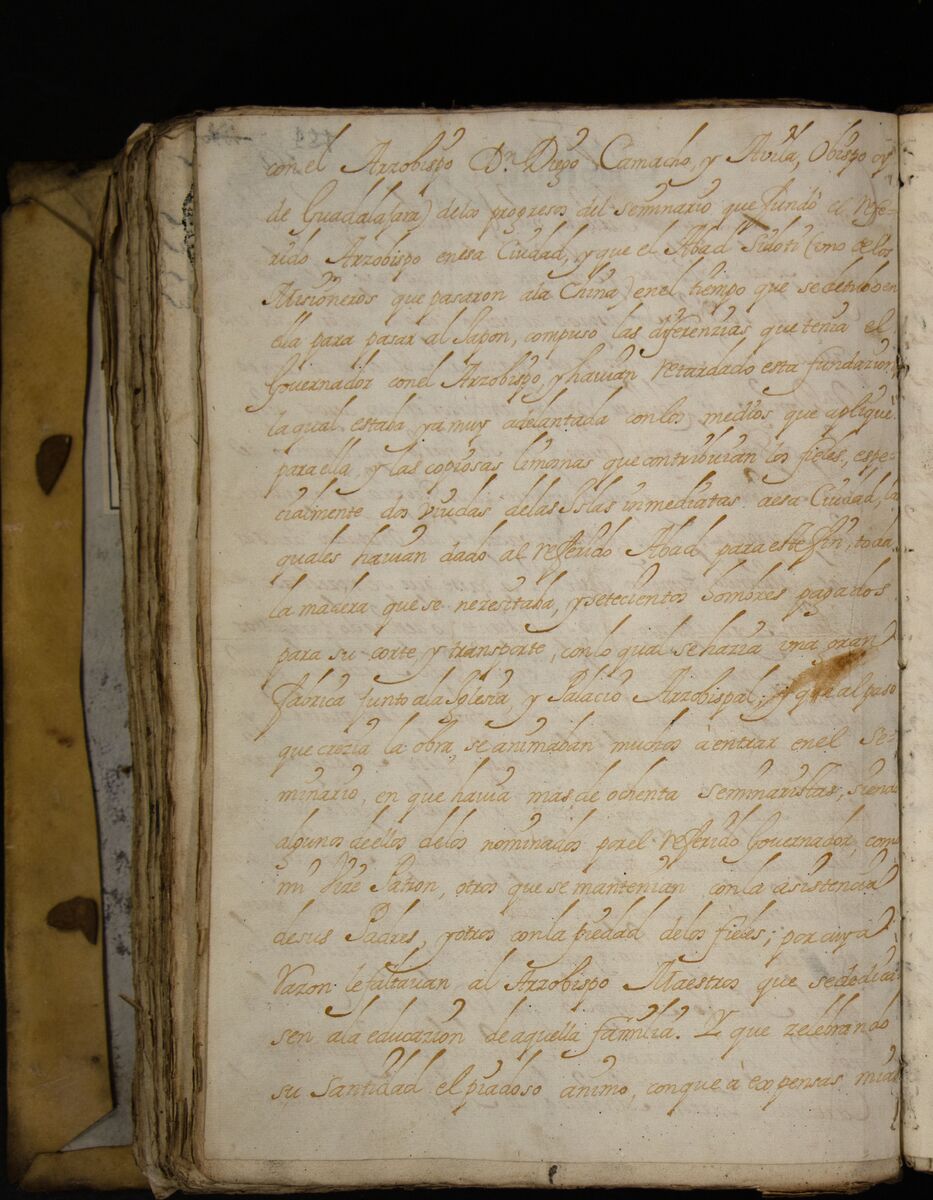 con el Arzobispo Dn. Diego Camacho, y Avila, Obispo oy
de Guadalajara) delos progresos del seminario que fundó el refe-
rido Arzobispo enesa Ciudad, y que el Abad Sidoti (uno delos
Misioneros que pasaron ala China) en el tiempo que se detubo en
ella para pasar al Japon, compuso las diferenzias que tenia el
Governador con el Arzobispo, y havian retardado esta fundazion,
la qual estaba ya muy adelantada con los medios que apliqué
para ella, y las copiosas limosnas que contribuian los fieles, espe-
cialmente dos viudas delas Islas inmediatas aesa Ciudad, la
quales havian dado al referido Abad para este fin, toda
la madera que se nezesitaba, y setecientos hombres pagados
para su corte, y transporte, con lo qual se hazia una gran
fabrica junto ala Iglesia, y Palacio Arzobispal, y que al paso
que crezia la obra, se animaban muchos à entrar en el Se-
minario, en que havia mas de ochenta seminaristas, siendo
algunos de ellos delos nominados por el referido Governador, como
mi Vize Patron, otros que se mantenian con la asistencia
de sus Padres, y otros con la piedad delos fieles; por cuya
razon le faltavan al Arzobispo Maestros que se dedicas
sen ala educazion de aquella familia. Y que zelebrando
su Santidad el piadoso animo, con que à expensas mias